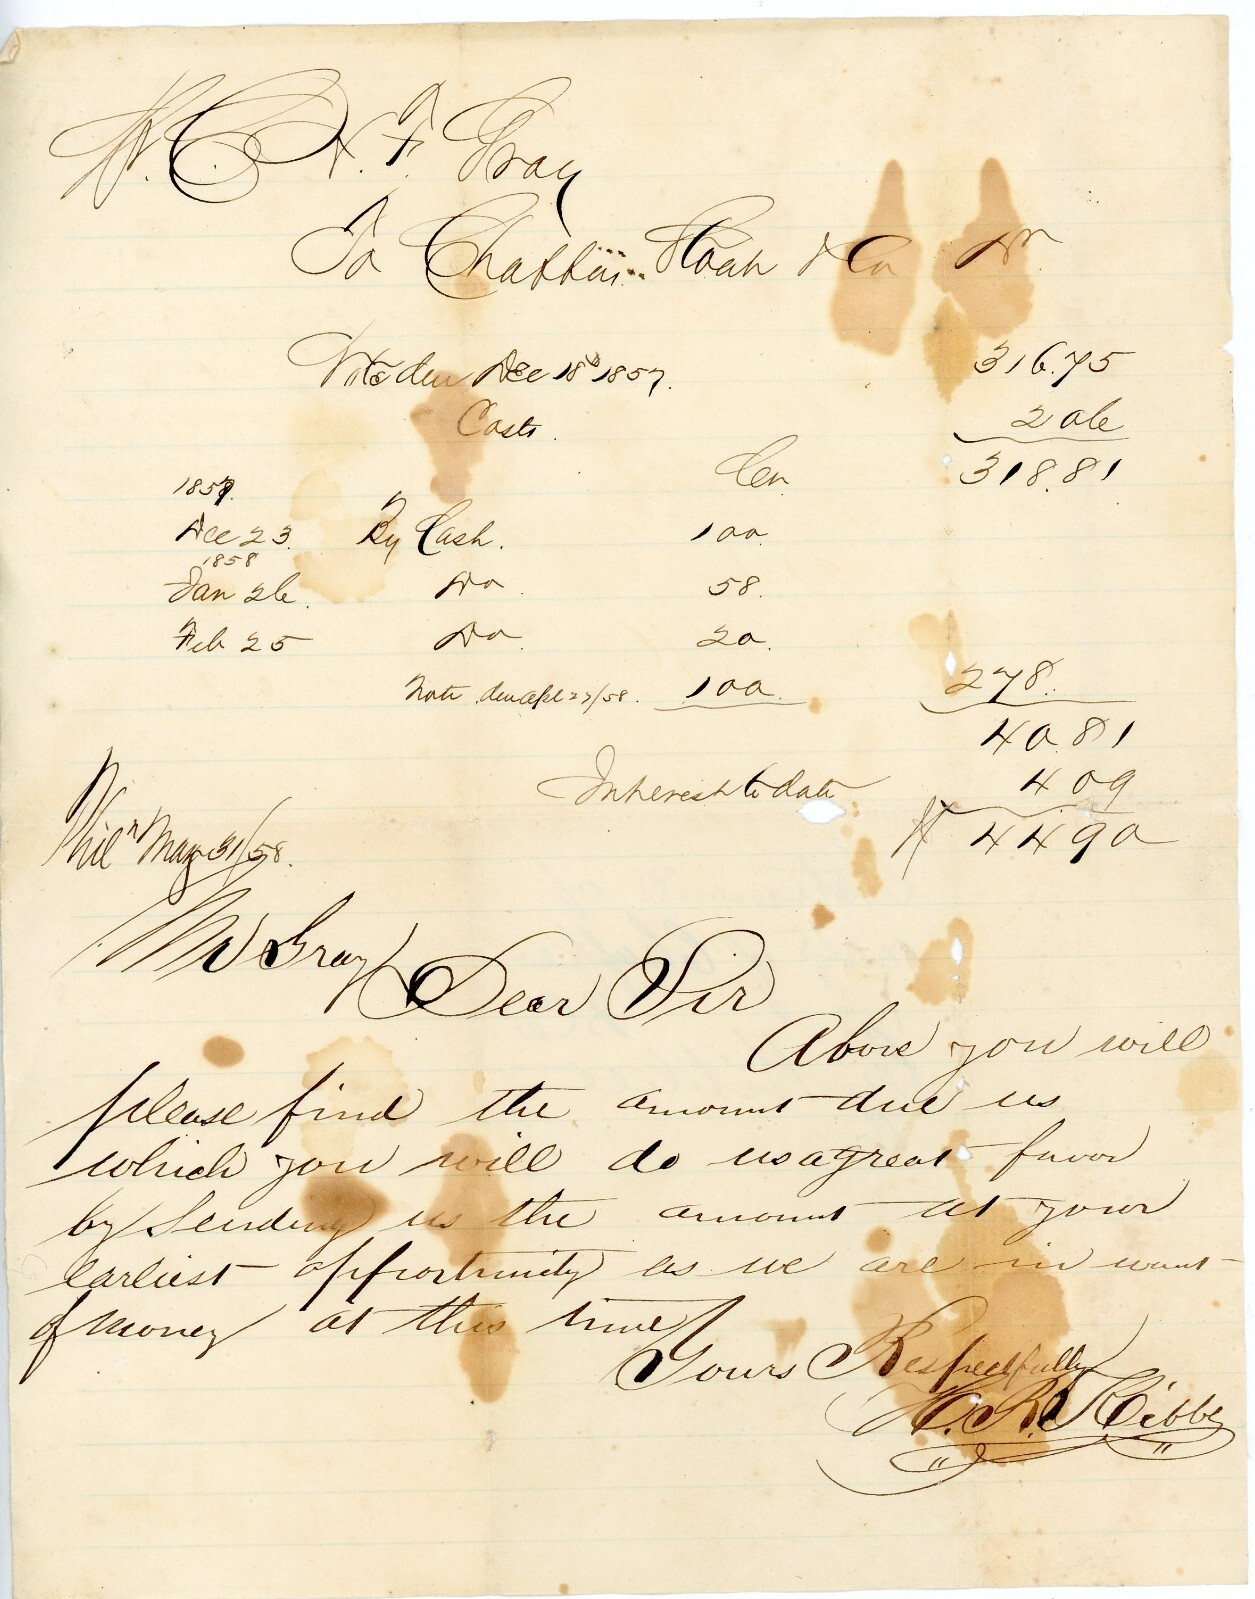 F. Gray
To Chaffin Sloan & Co Dr
Note due Dec 18th 1857. 316.75
Costs. 2 06
1857. Cr. 318.81
Dec 23. By Cash. 100
1858
Jan 26. Do. 58.
Feb 25 Do. 20.
Note due Apl 27/58. 100. 278.
40.81
Interest to date 4 09
$ 44 90
Phila May 31/58.
Mr Gray
Dear Sir
Above you will
please find the amount due us
which you will do us a great favor
by sending us the amount at your
earliest opportunity as we are in want
of money at this time
Yours Respectfully
H. R. Kibby